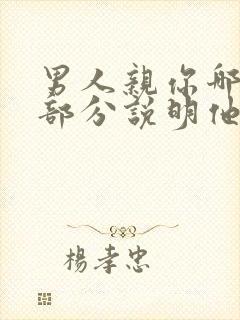 男人親你哪
部分説明他
楊孝忠